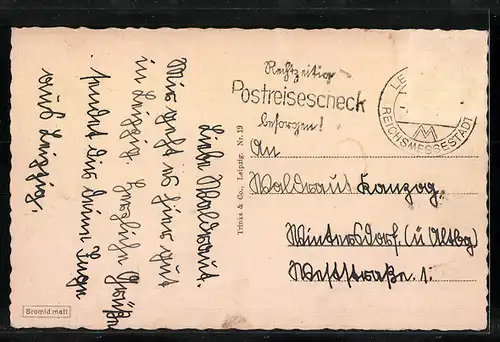 Liebe Waldraut.
Mir geht es hier gut
in Leipzig. Herzliche Grüße
sendet dir deine Inge
aus Leipzig.
Trinks & Co., Leipzig. Nr. 19
Rechtzeitig
Postreisescheck
besorgen!
LE
REICHSMESSESTADT
M
An
Waldraut Kanzog.
Wintersdorf. (ü Altbg)
Weststraße. 1.
Bromid matt